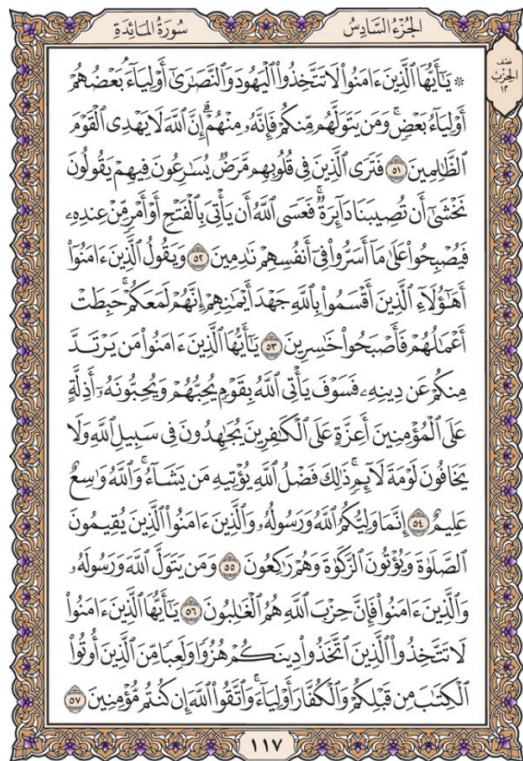 الجُزْءُ السَّادِسُ
سُورَةُ المَائِدَةِ
نصف
الحزب
١٢
۞ يَٰٓأَيُّهَا ٱلَّذِينَ ءَامَنُوا۟ لَا تَتَّخِذُوا۟ ٱلْيَهُودَ وَٱلنَّصَٰرَىٰٓ أَوْلِيَآءَ بَعْضُهُمْ
أَوْلِيَآءُ بَعْضٍ وَمَن يَتَوَلَّهُم مِّنكُمْ فَإِنَّهُۥ مِنْهُمْ إِنَّ ٱللَّهَ لَا يَهْدِى ٱلْقَوْمَ
ٱلظَّٰلِمِينَ ٥١ فَتَرَى ٱلَّذِينَ فِى قُلُوبِهِم مَّرَضٌ يُسَٰرِعُونَ فِيهِمْ يَقُولُونَ
نَخْشَىٰٓ أَن تُصِيبَنَا دَآئِرَةٌ فَعَسَى ٱللَّهُ أَن يَأْتِىَ بِٱلْفَتْحِ أَوْ أَمْرٍ مِّنْ عِندِهِۦ
فَيُصْبِحُوا۟ عَلَىٰ مَآ أَسَرُّوا۟ فِىٓ أَنفُسِهِمْ نَٰدِمِينَ ٥٢ وَيَقُولُ ٱلَّذِينَ ءَامَنُوٓا۟
أَهَٰٓؤُلَآءِ ٱلَّذِينَ أَقْسَمُوا۟ بِٱللَّهِ جَهْدَ أَيْمَٰنِهِمْ إِنَّهُمْ لَمَعَكُمْ حَبِطَتْ
أَعْمَٰلُهُمْ فَأَصْبَحُوا۟ خَٰسِرِينَ ٥٣ يَٰٓأَيُّهَا ٱلَّذِينَ ءَامَنُوا۟ مَن يَرْتَدَّ
مِنكُمْ عَن دِينِهِۦ فَسَوْفَ يَأْتِى ٱللَّهُ بِقَوْمٍ يُحِبُّهُمْ وَيُحِبُّونَهُۥٓ أَذِلَّةٍ
عَلَى ٱلْمُؤْمِنِينَ أَعِزَّةٍ عَلَى ٱلْكَٰفِرِينَ يُجَٰهِدُونَ فِى سَبِيلِ ٱللَّهِ وَلَا
يَخَافُونَ لَوْمَةَ لَآئِمٍ ذَٰلِكَ فَضْلُ ٱللَّهِ يُؤْتِيهِ مَن يَشَآءُ وَٱللَّهُ وَٰسِعٌ
عَلِيمٌ ٥٤ إِنَّمَا وَلِيُّكُمُ ٱللَّهُ وَرَسُولُهُۥ وَٱلَّذِينَ ءَامَنُوا۟ ٱلَّذِينَ يُقِيمُونَ
ٱلصَّلَوٰةَ وَيُؤْتُونَ ٱلزَّكَوٰةَ وَهُمْ رَٰكِعُونَ ٥٥ وَمَن يَتَوَلَّ ٱللَّهَ وَرَسُولَهُۥ
وَٱلَّذِينَ ءَامَنُوا۟ فَإِنَّ حِزْبَ ٱللَّهِ هُمُ ٱلْغَٰلِبُونَ ٥٦ يَٰٓأَيُّهَا ٱلَّذِينَ ءَامَنُوا۟
لَا تَتَّخِذُوا۟ ٱلَّذِينَ ٱتَّخَذُوا۟ دِينَكُمْ هُزُوًا وَلَعِبًا مِّنَ ٱلَّذِينَ أُوتُوا۟
ٱلْكِتَٰبَ مِن قَبْلِكُمْ وَٱلْكُفَّارَ أَوْلِيَآءَ وَٱتَّقُوا۟ ٱللَّهَ إِن كُنتُم مُّؤْمِنِينَ ٥٧
١١٧